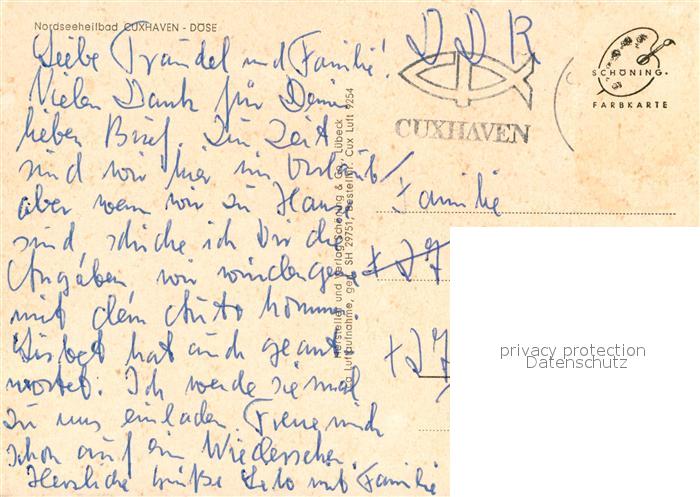 Nordseeheilbad CUXHAVEN - DÖSE
Liebe Traudel und Familie!
Vielen Dank für Deinen
lieben Brief. Zur Zeit
sind wir hier im Urlaub
aber wenn wir zu Hause
sind schicke ich Dir die
Angaben wir würden gerne
mit dem Auto kommen
hat auch geant
wortet. Ich werde sie mal
zu uns einladen. Freue mich
schon auf ein Wiedersehen
Herzliche Grüße Lilo mit Familie
Hersteller und Verlag: Schöning & Co., Lübeck
Luftaufnahme, gen. SH 29751, Bestellnr. Cux Luft 9254
DDR
CUXHAVEN
SCHÖNING
FARBKARTE
Familie
privacy protection
Datenschutz